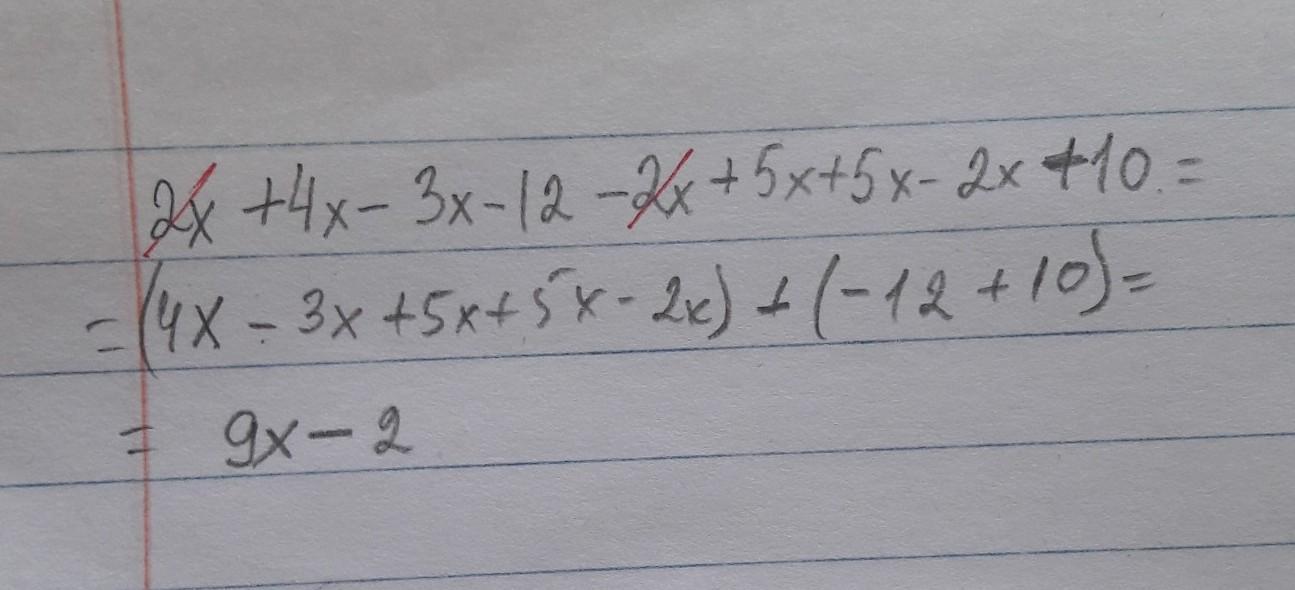 2x + 4x - 3x - 12 - 2x + 5x + 5x - 2x + 10. =
= (4x - 3x + 5x + 5x - 2x) + (-12 + 10) =
= 9x - 2